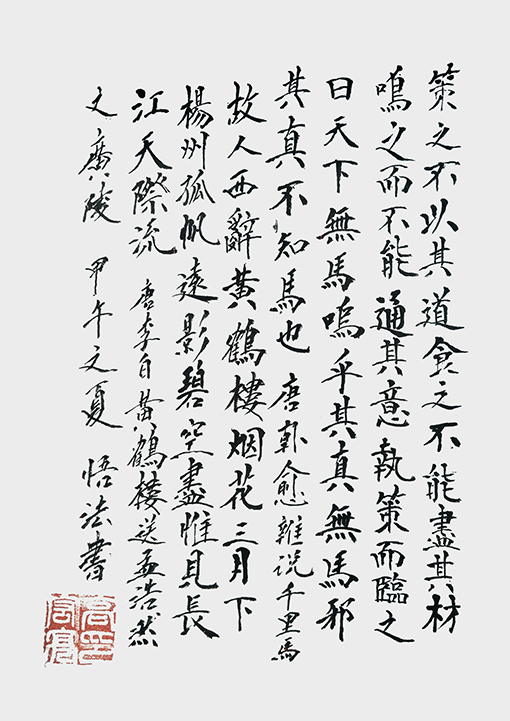 策之不以其道食之不能盡其材
鳴之而不能通其意執策而臨之
曰天下無馬嗚乎其真無馬邪
其真不知馬也唐韩愈雜说千里馬
故人西辭黄鶴樓烟花三月下
楊州孤帆遠影碧空盡惟見長
江天際流唐李白黄鶴楼送孟浩然
之廣陵 甲午之夏 悟法書